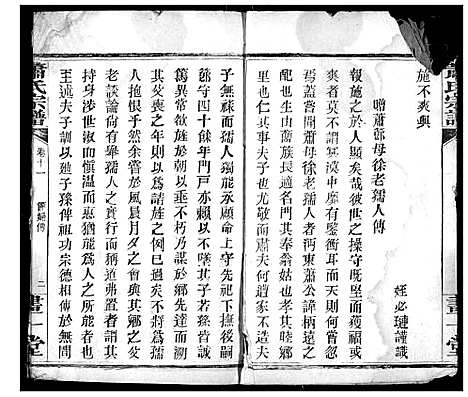 蕭氏宗譜
施不爽與
姪必璉謹識
贈蕭節母徐老孺人傳
報施之於人顯矣哉彼世之操守既堅而獲福
爽者莫不謂冥漠中原有鑒衡耳而天則何嘗
焉蓋嘗於蕭節母徐老孺人者沔東蕭公諱柄遠之
配也生由薔族長適名門其奉翁姑也孝其睦鄉
里也夫人其事夫子也尤敬而肅夫何遭家不造夫
子無祿而孺人獨能永願命上守先祀下撫後嗣
節守四十餘年門戶亦賴以不墜其子若孫皆誠
篤異常欲旌於朝久不可得猶旌於鄉先達而溯
其艾喪之年則以為請旌之例已過矣不幾將為孺
人惜乎然余嘗於風晨月夕之會與其鄉之父
老談論何有舉孺人之實行而稱道弗置者謂其
持身也淑慎溫而惠猶能為巾幗中特出之英
至述夫子訓以迪子孫俾祖功宗德相傳於無間
蕭氏宗譜
卷十一
節婦傳
二
書一堂